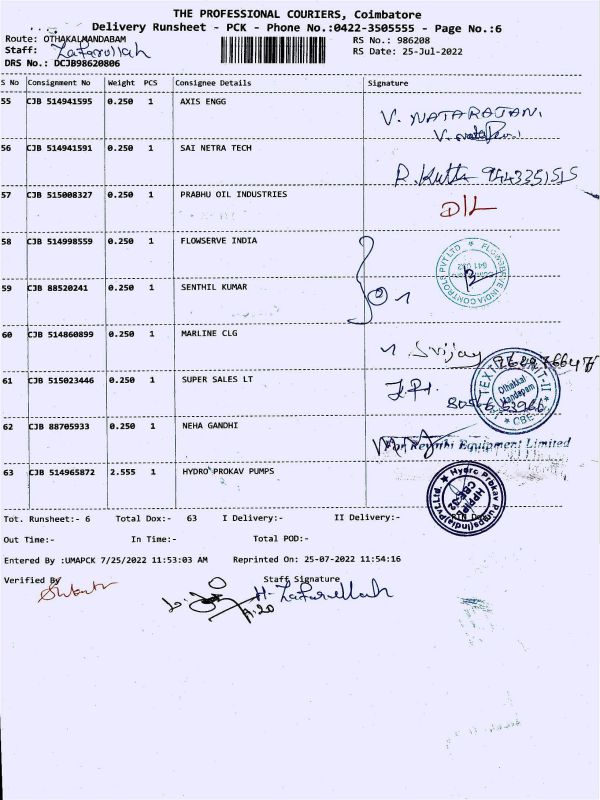 THE PROFESSIONAL COURIERS, Coimbatore
Delivery Runsheet - PCK - Phone No.:0422-3505555 - Page No.:6
Route: OTHAKALMANDABAM RS No.: 986208
Staff: Zafarullah RS Date: 25-Jul-2022
DRS No.: DCJB98620806
S No Consignment No Weight PCS Consignee Details Signature
55 CJB 514941595 0.250 1 AXIS ENGG
V. NATARAJAN
56 CJB 514941591 0.250 1 SAI NETRA TECH
R. Kutti 9443351515
57 CJB 515008327 0.250 1 PRABHU OIL INDUSTRIES
D/L
58 CJB 514998559 0.250 1 FLOWSERVE INDIA
FLOWSERVE INDIA CONTROLS PVT LTD
59 CJB 88520241 0.250 1 SENTHIL KUMAR
60 CJB 514860899 0.250 1 MARLINE CLG
Srijay
61 CJB 515023446 0.250 1 SUPER SALES LT
Othakkal Mandapam
62 CJB 88705933 0.250 1 NEHA GANDHI
Equipment Limited
63 CJB 514965872 2.555 1 HYDRO PROKAV PUMPS
Hydro Prokav Pumps(India)Pvt.Ltd.
Tot. Runsheet:- 6 Total Dox:- 63 I Delivery:- II Delivery:- RTN Dox:-
Out Time:- In Time:- Total POD:-
Entered By :UMAPCK 7/25/2022 11:53:03 AM Reprinted On: 25-07-2022 11:54:16
Verified By Staff Signature
H. Zafarullah